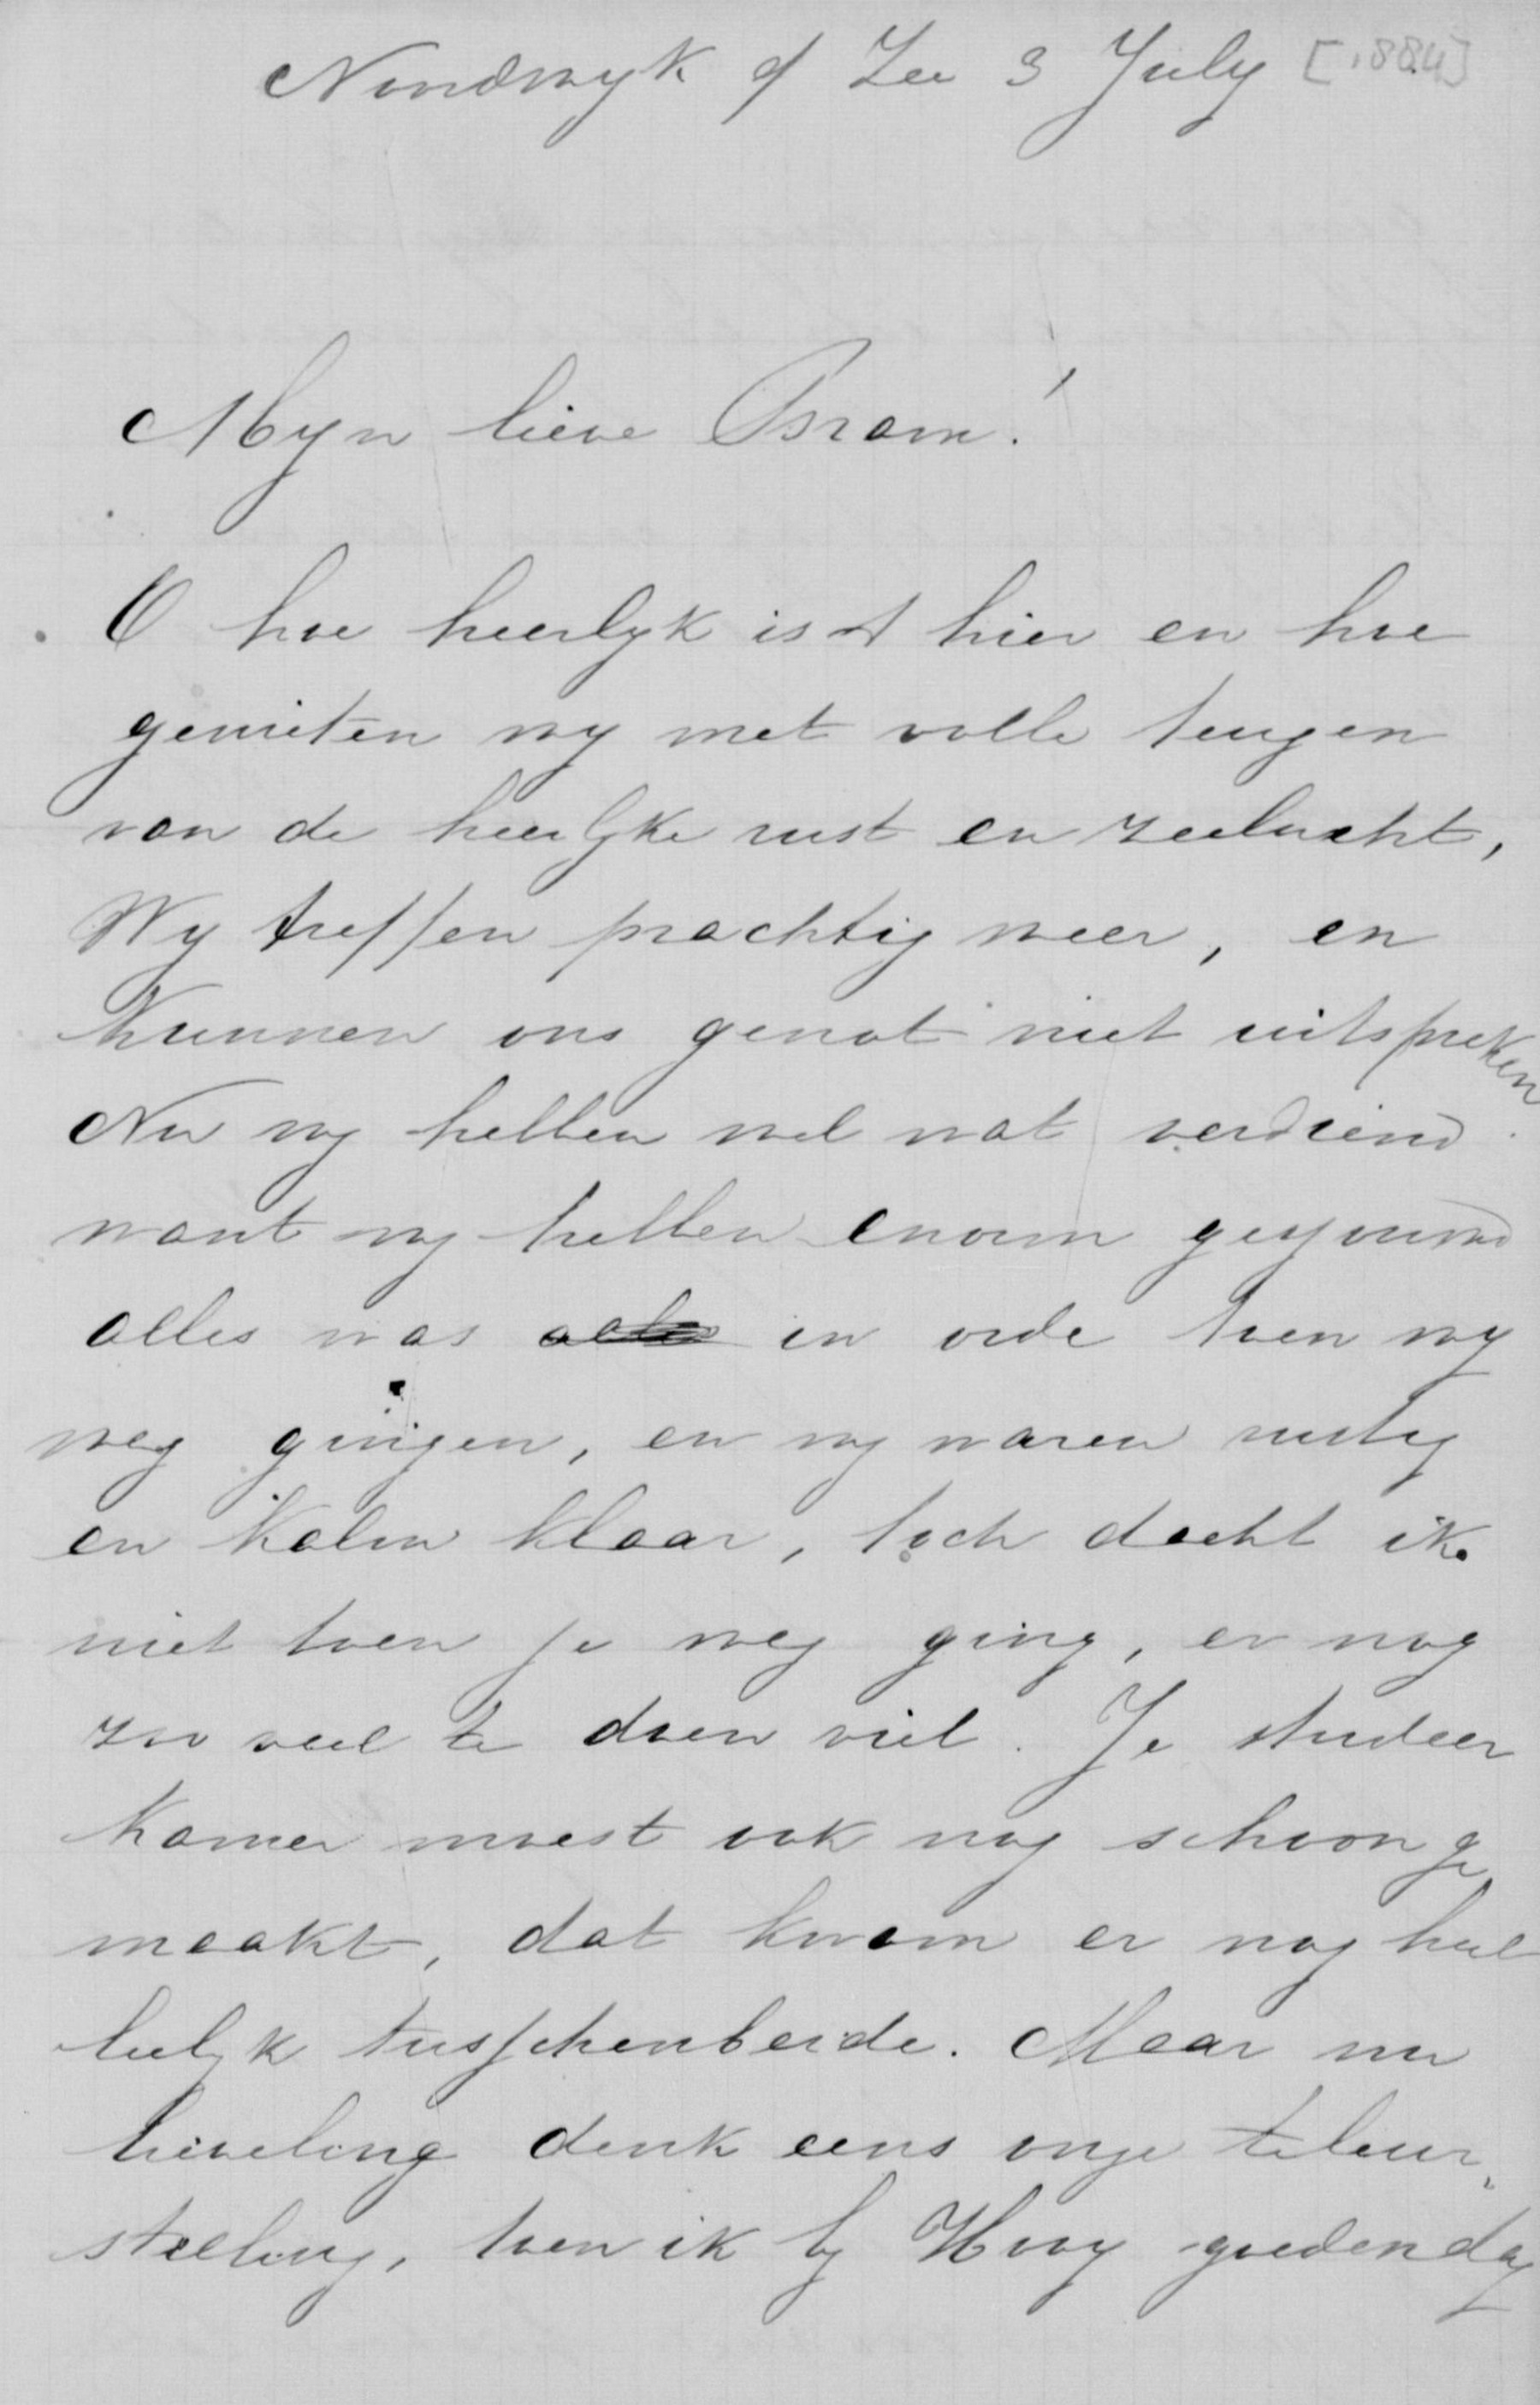 Noordwyk a/ Zee 3 July [1884]
Myn lieve Bram!
O hoe heerlyk is 't hier en hoe
genieten wy met volle teugen
van de heerlyke rust en zeelucht,
Wy treffen prachtig weer, en
kunnen ons genot niet uitspreken
Nu wy hebben wel wat verdiend.
want wy hebben enorm gesjouwd
alles was in orde toen wy
weg gingen, en wy waren rustig
en kalm klaar, toch dacht ik
niet toen je weg ging, er nog
zoo veel te doen viel. Je studeer
kamer moest ook nog schoon ge
maakt, dat kwam er nog heel
leelyk tusschenbeide. Maar nu
lieveling denk eens onze teleur,
stelling, toen ik by Hooy goedendag